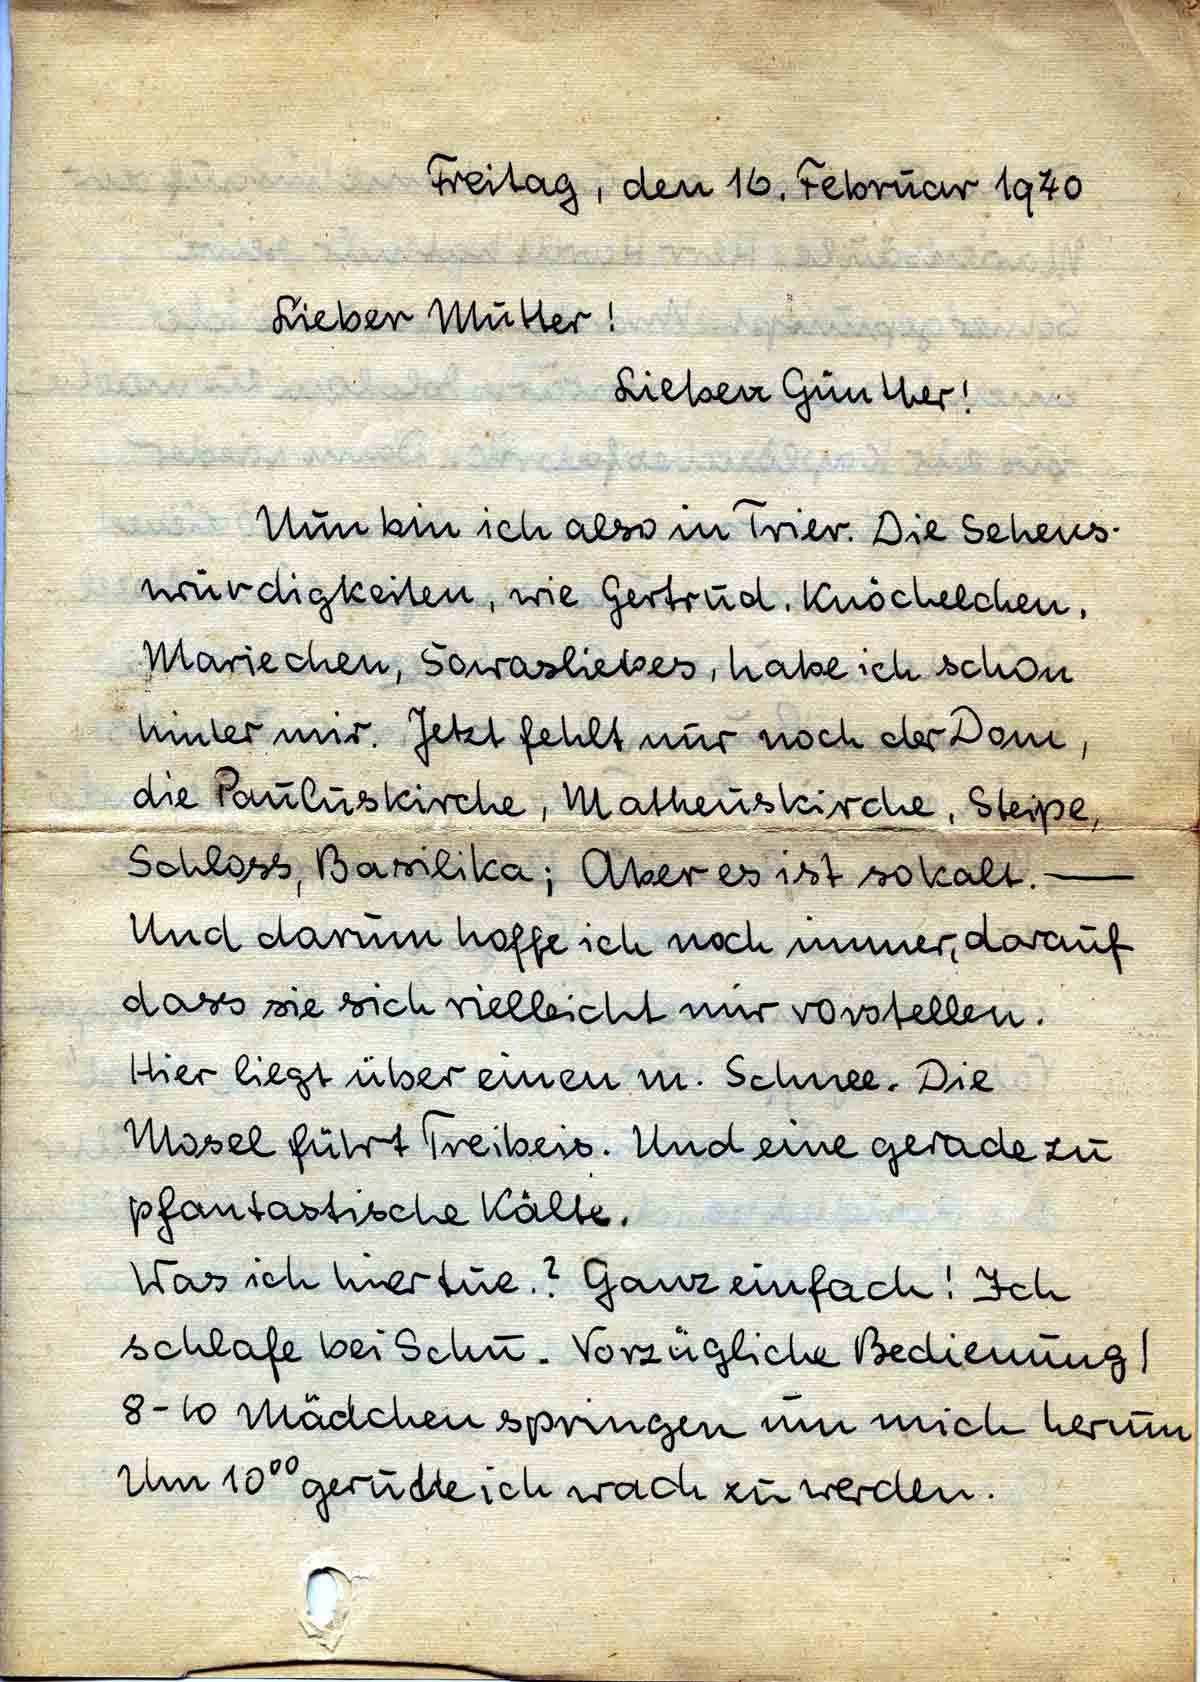 Freitag, den 16. Februar 1940
Lieber Mutter!
Lieber Günther!
Nun bin ich also in Trier. Die Sehens-
würdigkeiten, wie Gertrud, Knöchelchen,
Mariechen, Sowasliebes, habe ich schon
hinter mir. Jetzt fehlt nur noch der Dom,
die Pauluskirche, Matheuskirche, Steipe,
Schloss, Basilika; Aber es ist so kalt. —
Und darum hoffe ich noch immer, darauf
dass sie sich vielleicht mir vorstellen.
Hier liegt über einen m. Schnee. Die
Mosel führt Treibeis. Und eine gerade zu
pfantastische Kälte.
Was ich hier tue.? Ganz einfach! Ich
schlafe bei Schu. Vorzügliche Bedienung!
8-10 Mädchen springen um mich herum
Um 10⁰⁰ geruhe ich wach zu werden.